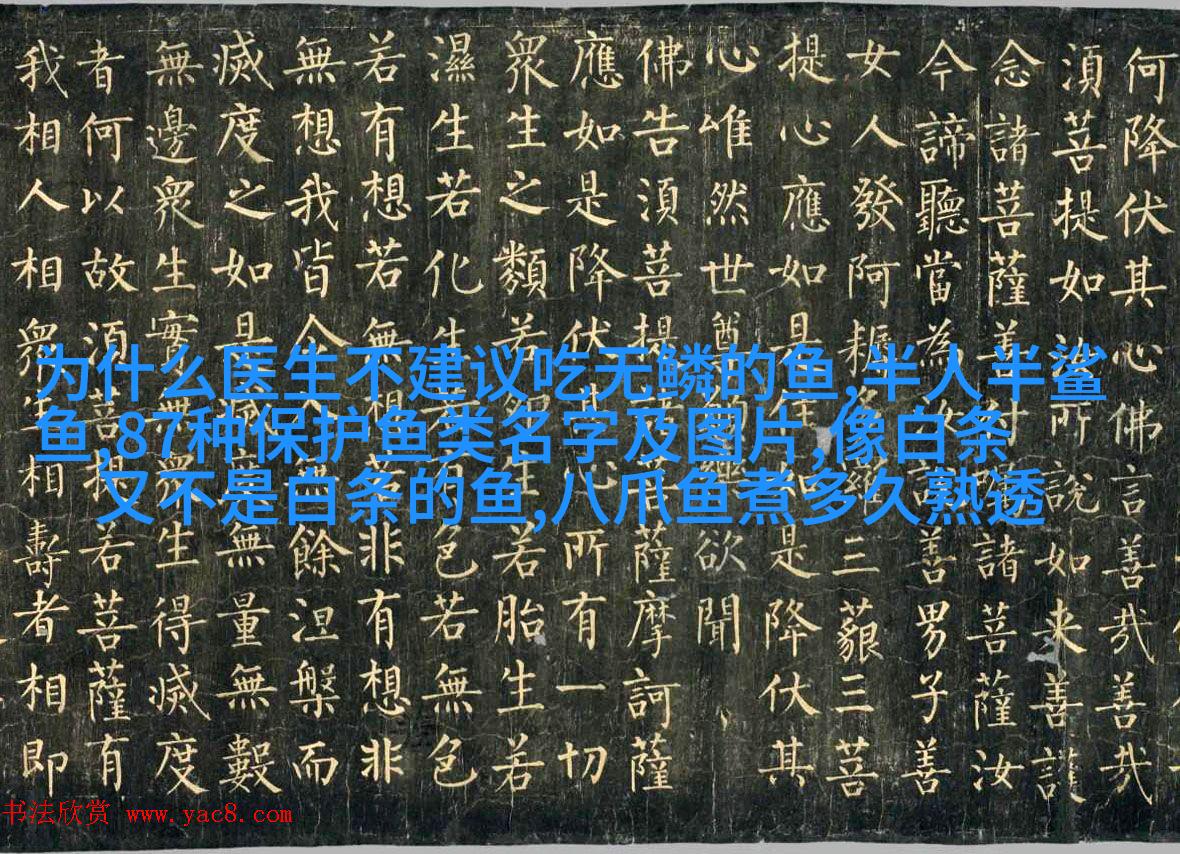 为什么医生不建议吃无鳞的鱼,半人半鲨
鱼,87种保护鱼类名字及图片,像白条
又不是白条的鱼,八爪鱼煮多久熟透
何降伏其心佛言善哉善哉
須菩提如汝所說如来善護
念諸菩薩善付囑諸菩薩汝
今諦聽當為汝說善男子善
女人發阿耨多羅三藐三菩
提心應如是住如是降伏其
心唯然世尊願樂欲聞
佛告須菩提諸菩薩摩訶薩
應如是降伏其心所有一切
眾生之類若卵生若胎生若
濕生若化生若有色若無色
若有想若無想若非有想非
無想我皆令入無餘涅槃而
滅度之如是滅度無量無數
無邊眾生實無眾生得滅度
者何以故須菩提若菩薩有
我相人相眾生相壽者相即
书法欣赏 www.yac8.com